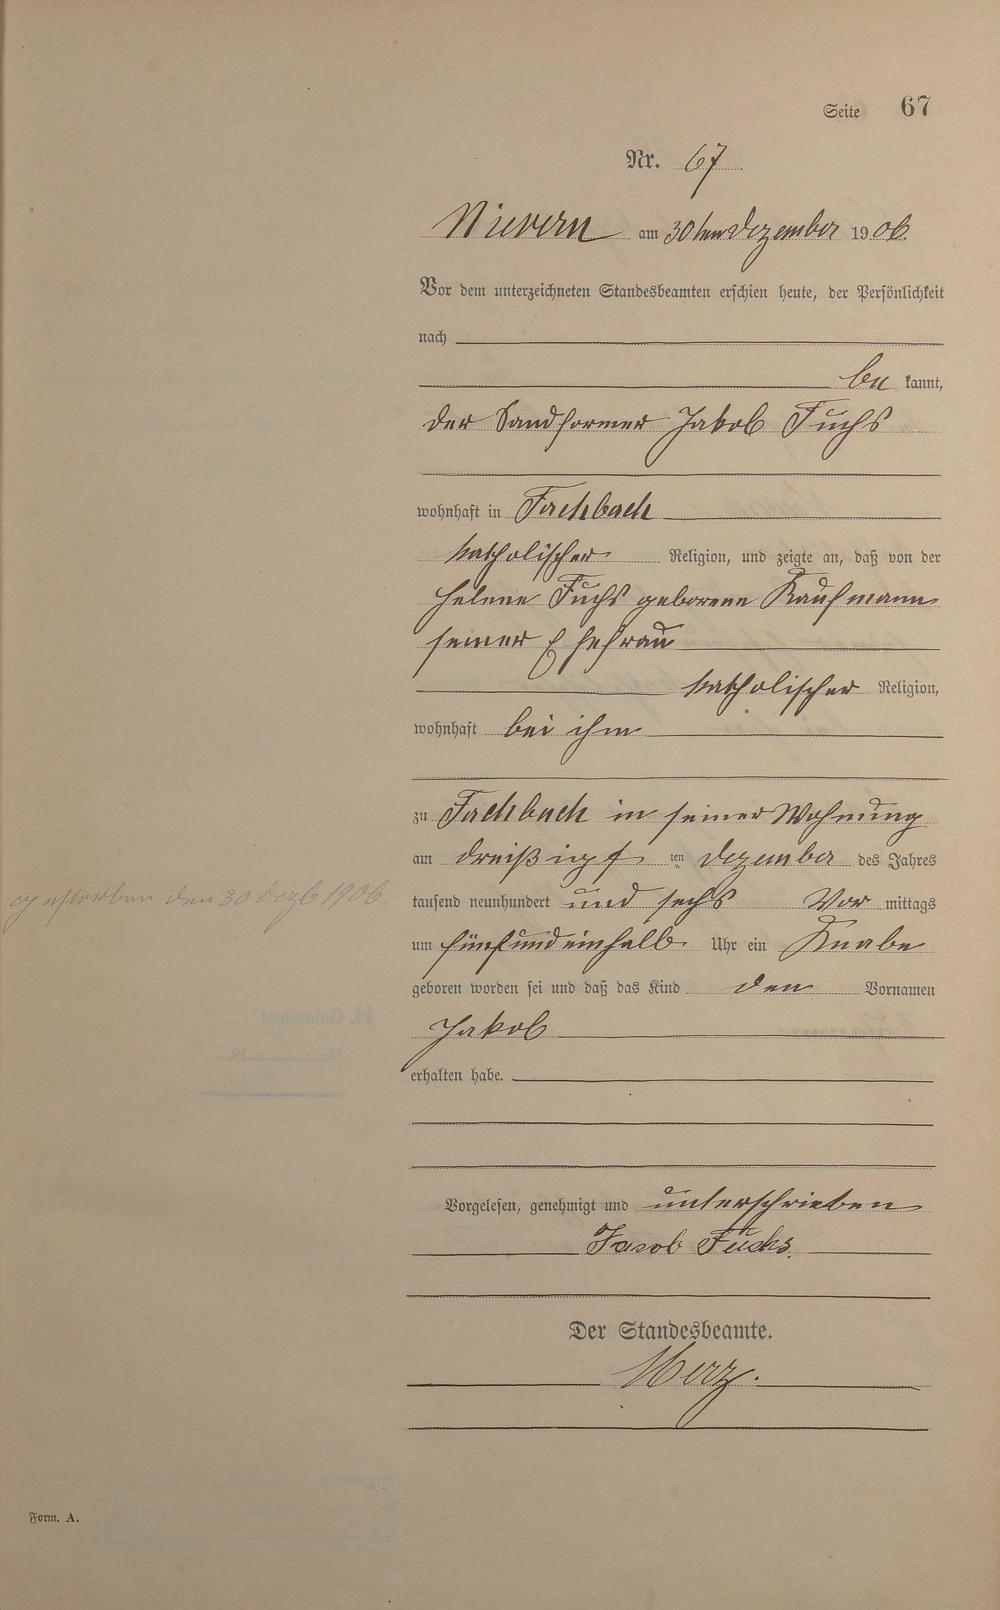 Seite 67
Nr. 67
Nievern am 30ten Dezember 1906.
Vor dem unterzeichneten Standesbeamten erschien heute, der Persönlichkeit
nach
be kannt,
der Sandformer Jakob Fuchs
wohnhaft in Fachbach
katholischer Religion, und zeigte an, daß von der
Helene Fuchs geborene Kaufmann
seiner Ehefrau
katholischer Religion,
wohnhaft bei ihm
zu Fachbach in seiner Wohnung
am dreißigst ten Dezember des Jahres
tausend neunhundert und sechs Vor mittags
um fünfundeinhalb Uhr ein Knabe
geboren worden sei und daß das Kind den Vornamen
Jakob
erhalten habe.
Vorgelesen, genehmigt und unterschrieben
Jacob Fuchs.
Der Standesbeamte.
Merz.
gestorben den 30 Dezb 1906.
Form. A.